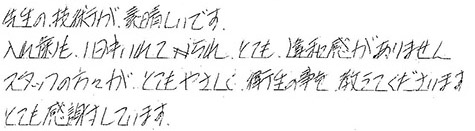 先生の技術力が素晴しいです。
入れ歯も、1日中いれてみられ、とても、違和感がありません
スタッフの方々が、とてもやさしく、衛生の事を教えてくださいます
とても感謝しています。